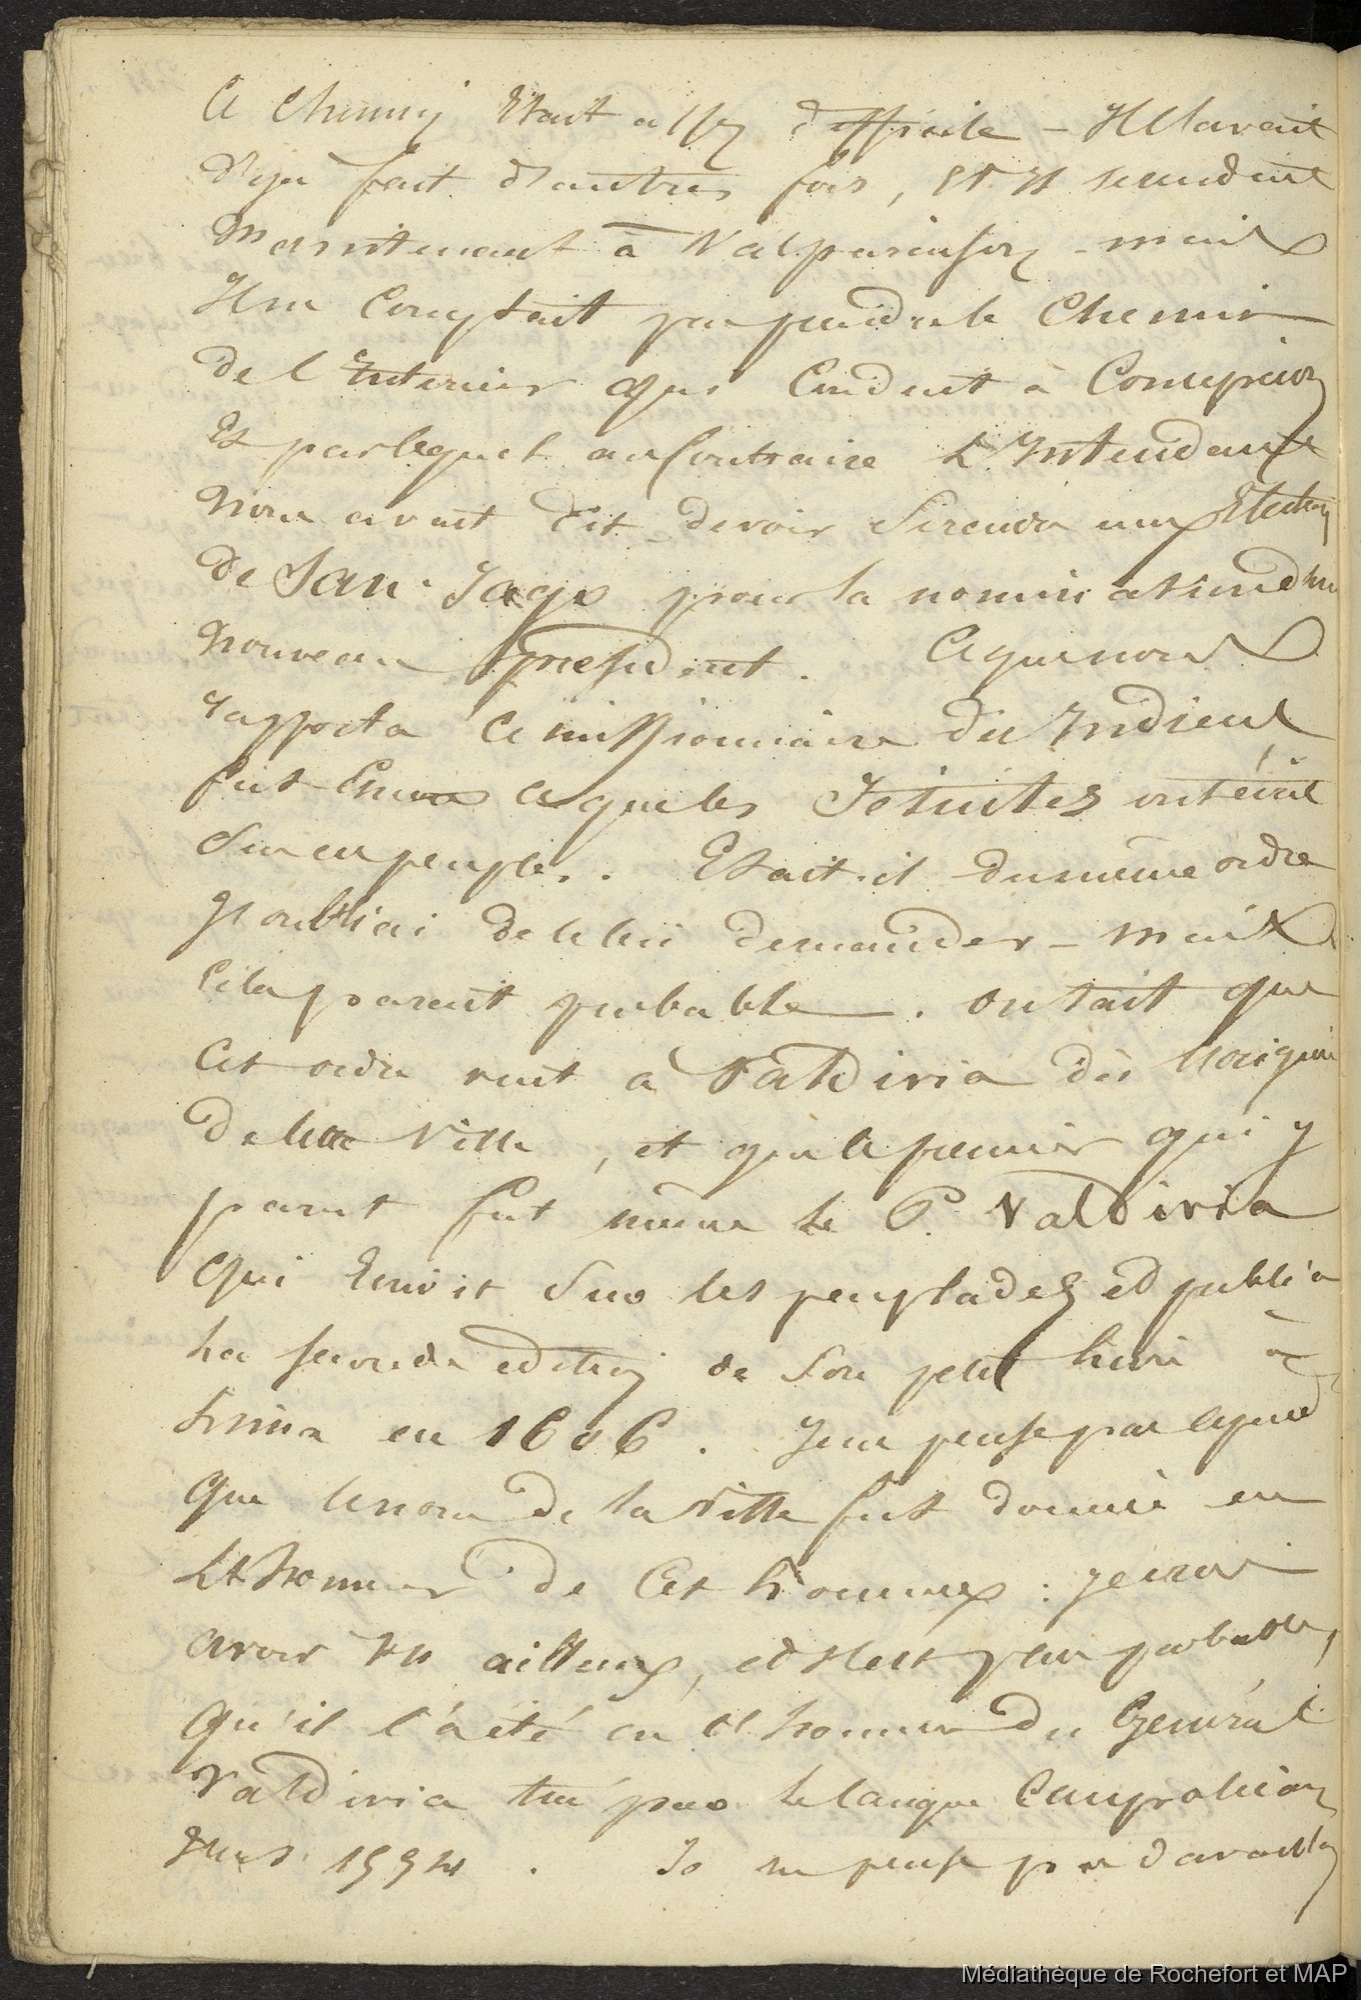 Ce chemin Etait assez difficile - Il l'avait
deja fait d'autres fois, et Il serendait
maintenant à Valparaison - mais
Il ne Comptait pas prendre le Chemin
de l'Interieur qui Conduit à Conception
Et par lequel au Contraire L'Intendant
nous avait dit devoir serendre aux Election
de San-Jago pour la nomination d'un
nouveau president. Ce que nous
rapporta Ce missionnaire des Indiens
fut Ce que les Jesuites ont écrit
Sur ces peuples. Etait-il du même ordre
J'oubliai de le lui demander - mais
Cela parait probable. on sait que
Cet ordre vint à Valdivia dès l'origine
de cette Ville, et que le premier qui y
parut fut même le P. Valdivia
qui Ecrivit sur les peuplades et publia
La seconde edition de son petit livre à
Lima en 1606. Je ne pense pas cependt
que le nom de la Ville fut donné en
L'honneur de Cet homme : je crois
avoir vu ailleurs, et Il est plus probable,
qu'il l'a été en l'honneur du General
Valdivia tué par le Cacique Caupolican
Vers 1554. Je ne pense pas d'avantage
Médiathèque de Rochefort et MAP